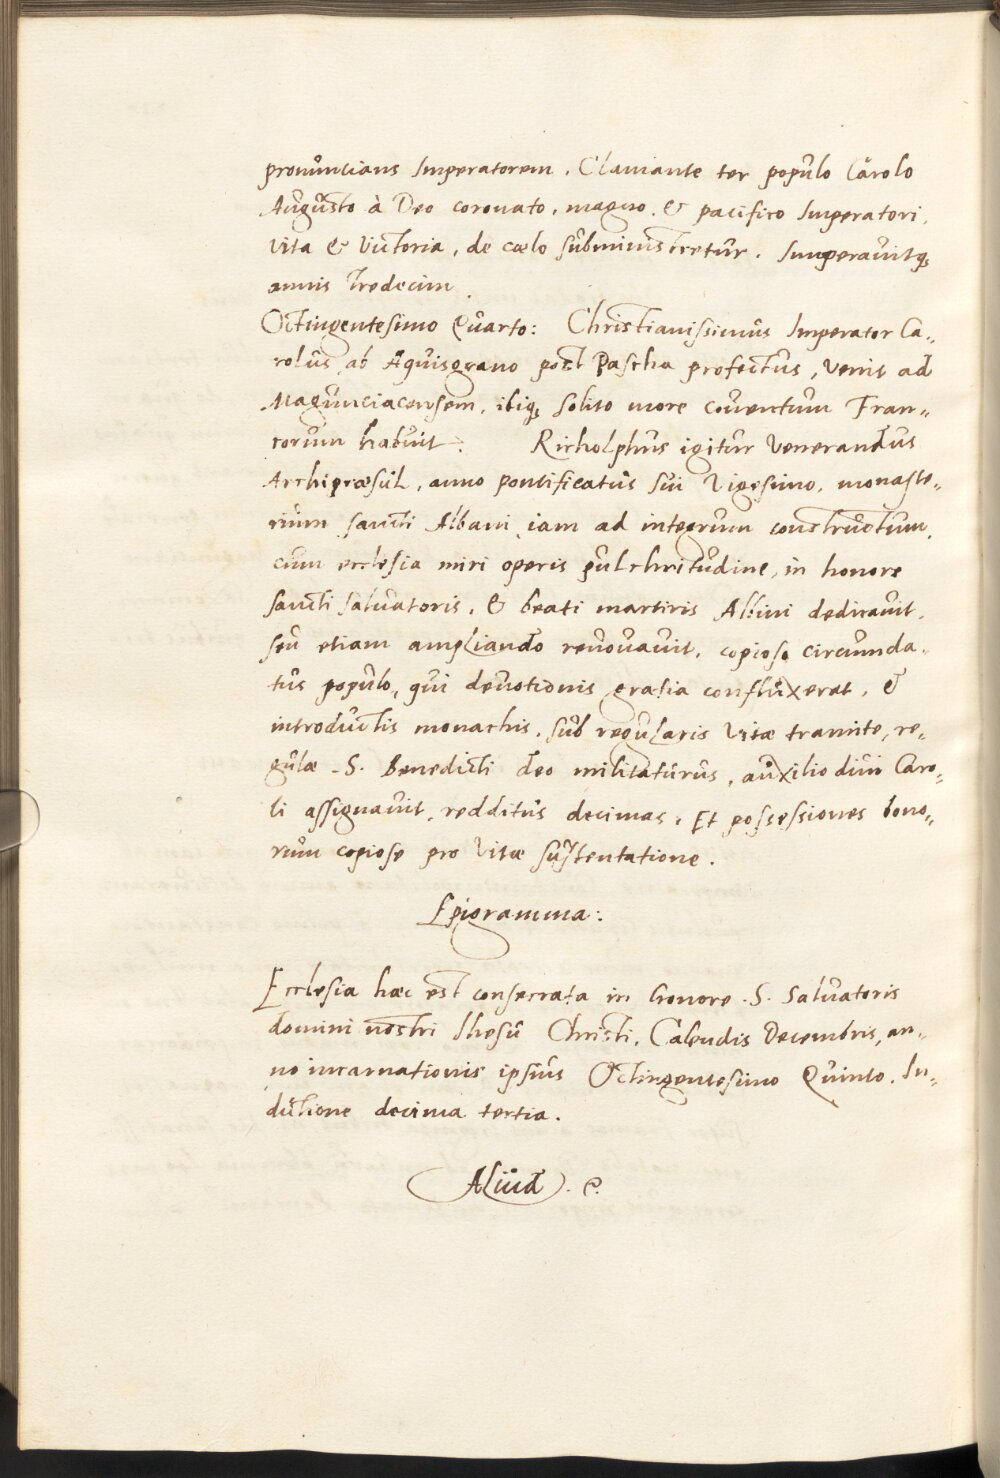 pronuntians Imperatorem. Clamante ter populo Carolo
Augusto à Deo coronato, magno, & pacifico Imperatori,
Vita & Victoria, de cælo subministretur. Imperavitq;
annis tredecim.
Octingentesimo Quarto: Christianissimus Imperator Ca„
rolus, ab Aquisgrano post Pascha profectus, venit ad
Magunciacensem, ibiq; solito more conventum Fran„
corum habuit: Richolphus igitur Venerandus
Archipræsul, anno pontificatus sui Vigesimo, monaste„
rium sancti Albani iam ad integrum constructum,
cum ecclesia miri operis pulchritudine, in honore
sancti salvatoris, & beati martiris Albini dedicavit,
seu etiam ampliando renovavit, copioso circunda„
tus populo, qui devotionis gratia confluxerat, &
introductis monachis, sub regularis vitæ tramite, re„
gulæ S. Benedicti deo militaturus, auxilio divi Caro„
li assignavit, redditus decimas, Et possessiones bono„
rum copiose pro vitæ sustentatione.
Epigramma:
Ecclesia hæc est consecrata in honore S. Salvatoris
domini nostri Ihesu Christi, Calendis Decembris, an„
no incarnationis ipsius Octingentesimo Quinto. In„
dictione decima tertia.
Aliud.